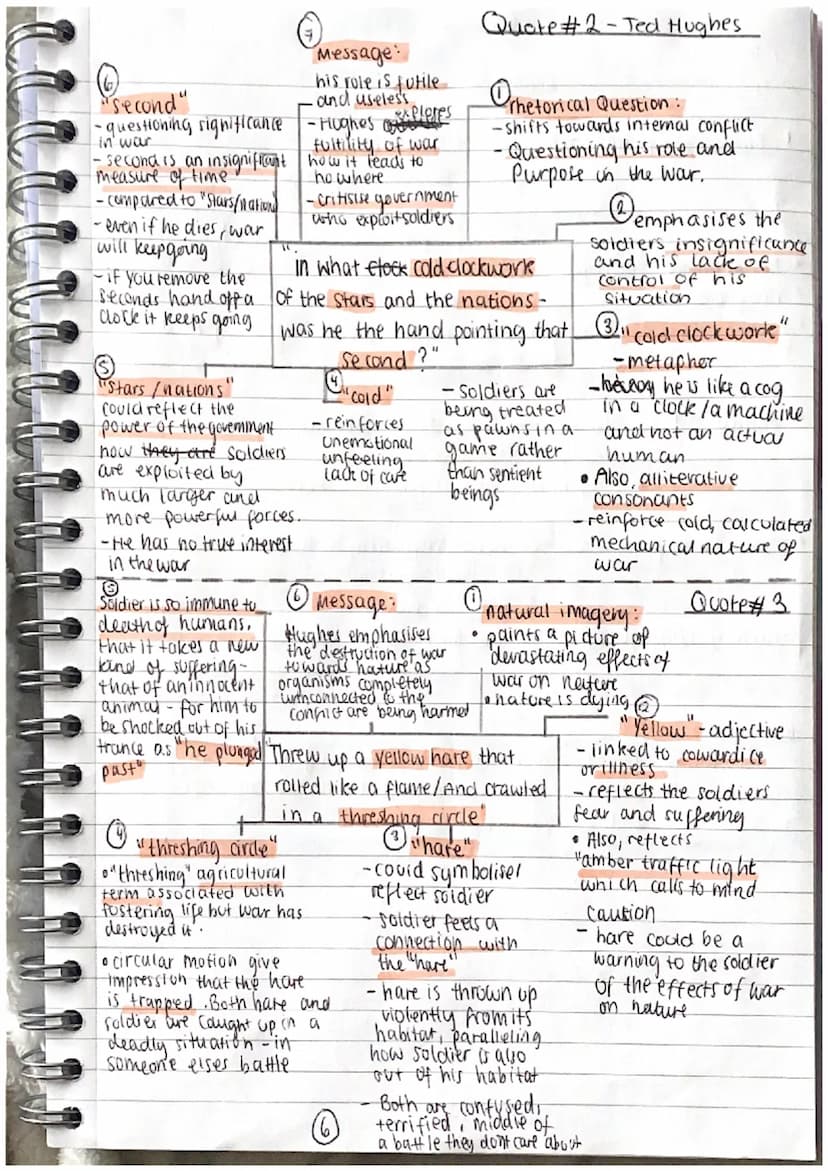 Quote #2 - Ted Hughes
①
rhetorical Question:
- shifts towards internal conflict
- Questioning his role and
Purpose in the war.
②
emphasises the
soldiers insignificance
and his lack of
control of his
situation
③
"cold clockwork"
- metapher
- he is like a cog
in a clock/a machine
and not an actual
human
• Also, alliterative
consonants
- reinforce cold, calculated
mechanical nature of
war
④
"cold"
- reinforces
unemotional
unfeeling
lack of care
- Soldiers are
being treated
as pawns in a
game rather
than sentient
beings
⑤
"Stars/nations"
could reflect the
power of the government
how they are soldiers
are exploited by
much larger and
more powerful forces.
- He has no true interest
in the war
⑥
"second"
- questioning significance
in war
- second is an insignificant
measure of time
- compared to "stars/nation
- even if he dies, war
will keep going
- if you remove the
seconds hand off a
clock it keeps going
⑦
Message:
his role is futile
and useless
- Hughes explores
fultility of war
how it leads to
no where
- critisise government
who exploit soldiers
"in what clock cold clockwork
Of the stars and the nations -
was he the hand pointing that
second?"
Quote #3
①
natural imagery:
• paints a picture of
devastating effects of
war on nature
• nature is dying
②
"Yellow" - adjective
- linked to cowardice
or illness
- reflects the soldiers
fear and suffering
• Also, reflects
"amber traffic light
which calls to mind
caution
- hare could be a
warning to the soldier
of the effects of war
on nature
③
"hare"
- could symbolise/
reflect soldier
- soldier feels a
connection with
the "hare"
- hare is thrown up
violently from its
habitat, paralleling
how soldier is also
out of his habitat
- Both are confused,
terrified, middle of
a battle they dont care about
④
"threshing circle"
• "threshing" agricultural
term associated with
fostering life but war has
destroyed it.
• circular motion give
impression that the hare
is trapped. Both hare and
soldier are caught up in a
deadly situation - in
someone elses battle
⑤
Soldier is so immune to
death of humans,
that it takes a new
kind of suffering -
that of an innocent
animal - for him to
be shocked out of his
trance as "he plunged
past"
⑥
Message:
Hughes emphasises
the destruction of war
towards nature as
organisms completely
unconnected to the
conflict are being harmed
"Threw up a yellow hare that
rolled like a flame/And crawled
in a threshing circle"
⑥